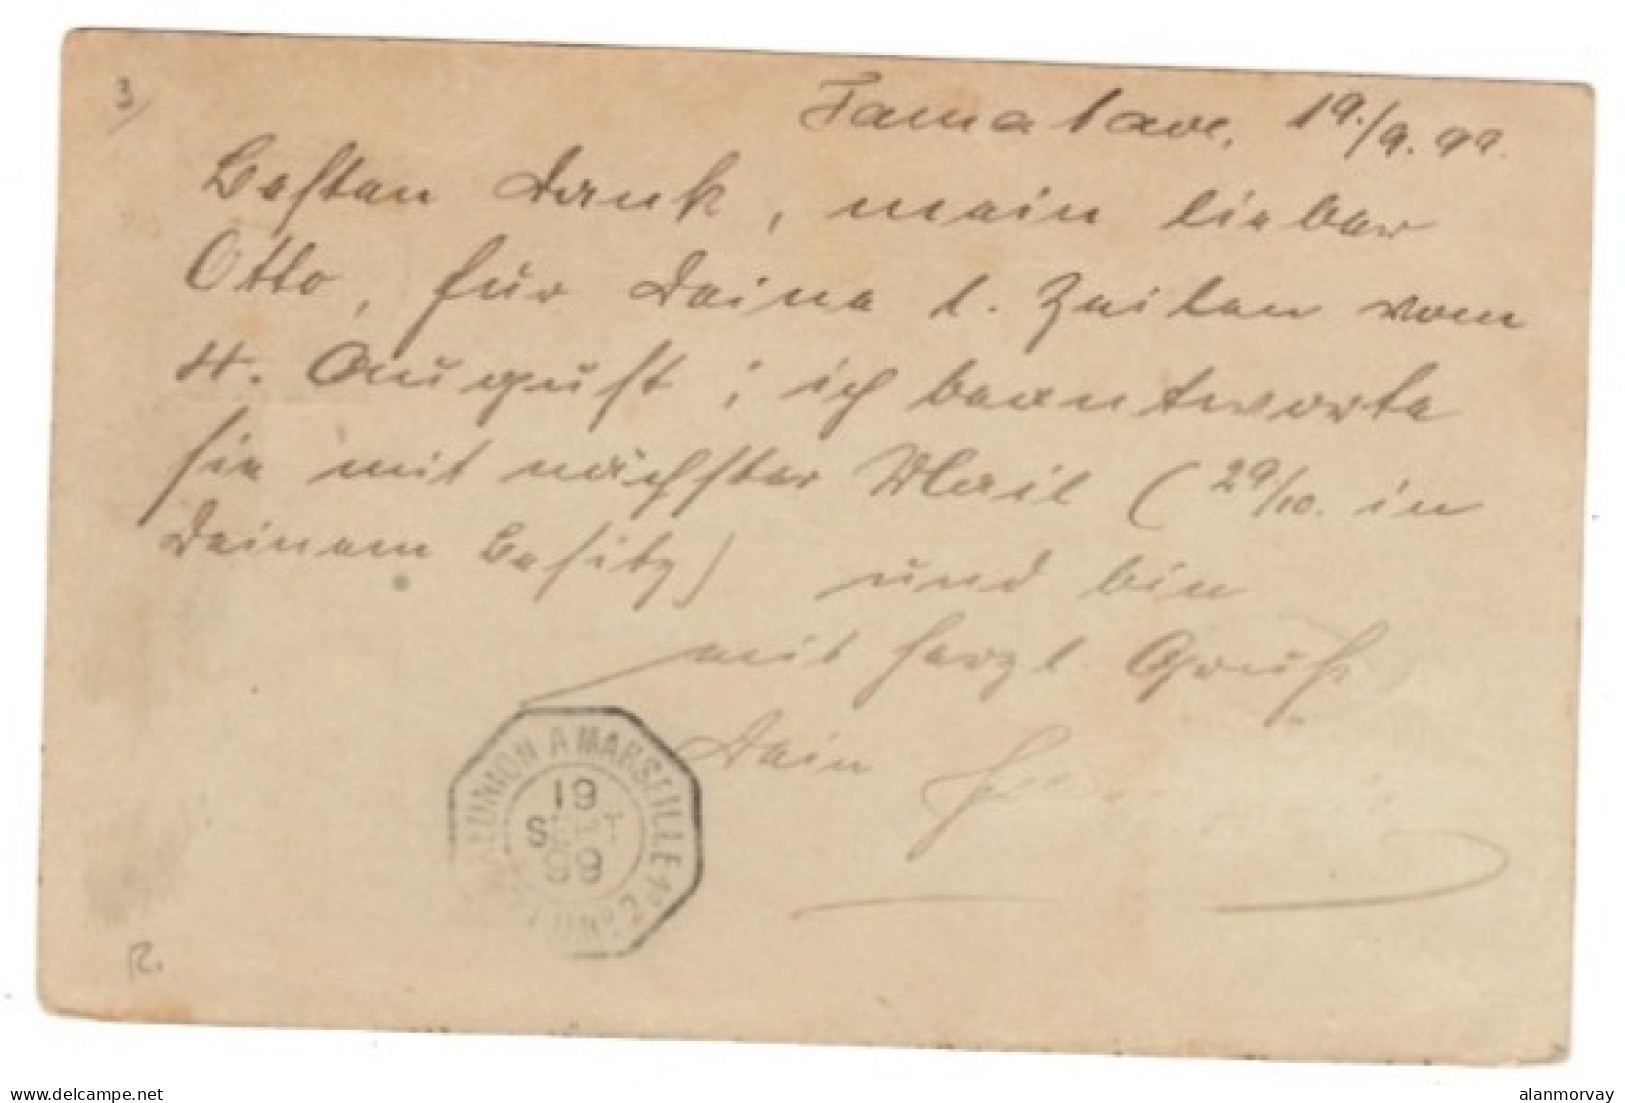 3)
Tamatave, 19./9.99.
Besten Dank, mein lieber
Otto, für Deine l. Zeilen vom
4. August; ich beantworte
sie mit nächster Mail (29/10. in
Deinem Besitz) und bin
mit herzl. Gruß
Dein
RÉUNION A MARSEILLE
19
SEPT
99
R.
delcampe.net
alanmorvay